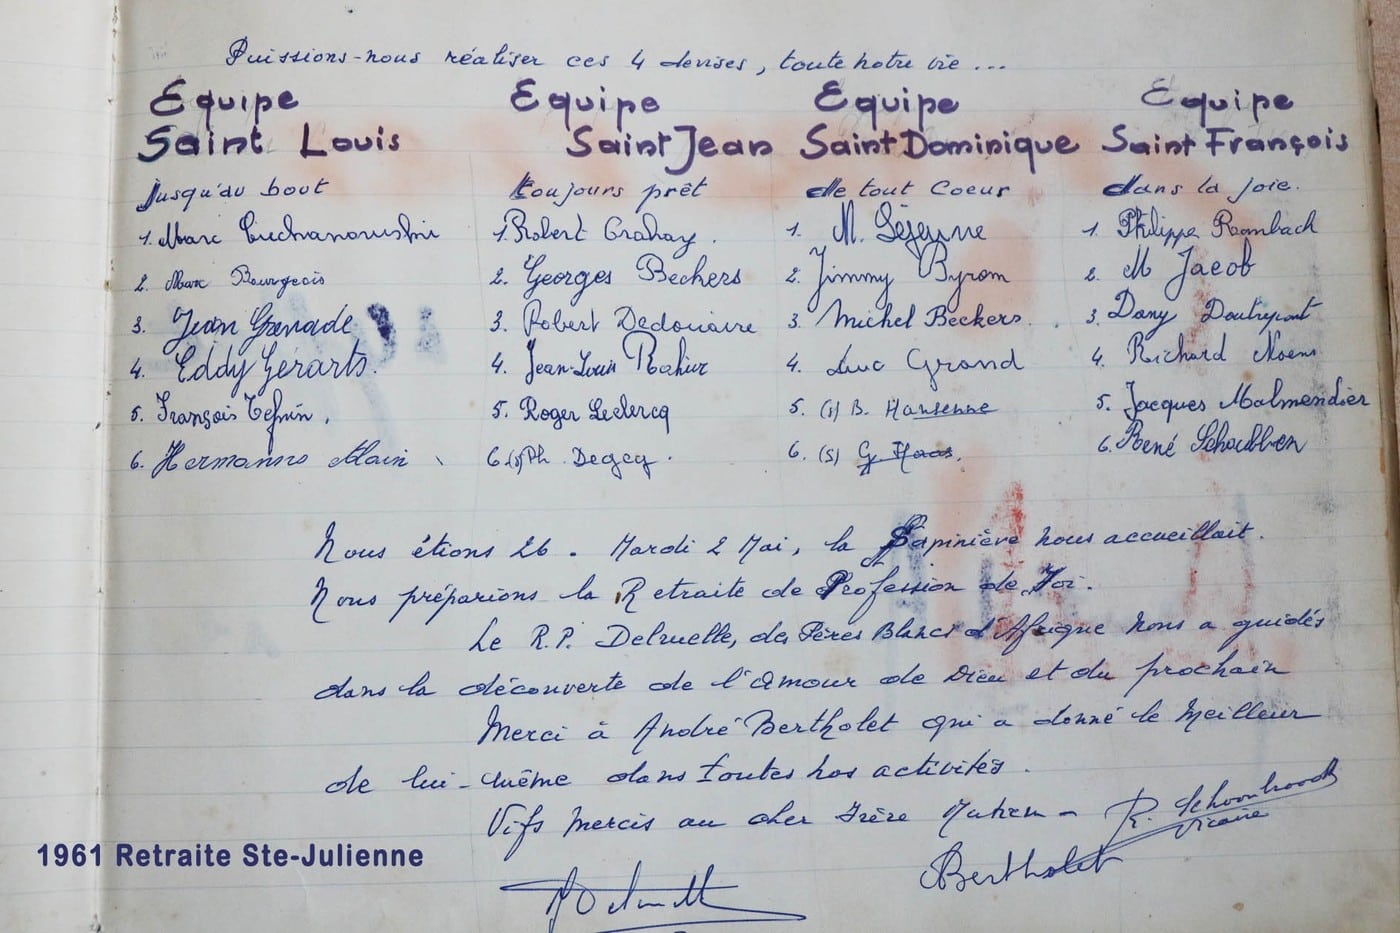 Puissions-nous réaliser ces 4 devises, toute notre vie ...
Equipe
Saint Louis
Jusqu'au bout
1. Marc
2. Marc Bourgeois
3. Jean Grenade
4. Eddy Gérarts.
5. François
6. Hermanns Alain
Equipe
Saint Jean
toujours prêt
1. Robert Grahay.
2. Georges Beckers
3. Robert Dedouaire
4. Jean-Louis Rahier
5. Roger Leclercq
6. (s) Ph. Degey.
Equipe
Saint Dominique
de tout coeur
1. M. Lejeune
2. Jimmy Byrom
3. Michel Beckers.
4. Luc Grand
5. (s) B. Hansenne
6. (s) G. Haas.
Equipe
Saint François
dans la joie.
1. Philippe Rombach
2. M Jacob
3. Dany Doutrepont
4. Richard Noens
5. Jacques Malmendier
6. René Schoubben
Nous étions 26. Mardi 2 Mai, la Sapinière nous accueillait.
Nous préparions la Retraite de Profession de Foi.
Le R.P. Delruelle, des Pères Blancs d'Afrique nous a guidés
dans la découverte de l'amour de Dieu et du prochain
Merci à André Bertholet qui a donné le meilleur
de lui-même dans toutes nos activités.
Vifs mercis au cher Frère -
R. Schoonbroodt
Vicaire
Bertholet
1961 Retraite Ste-Julienne